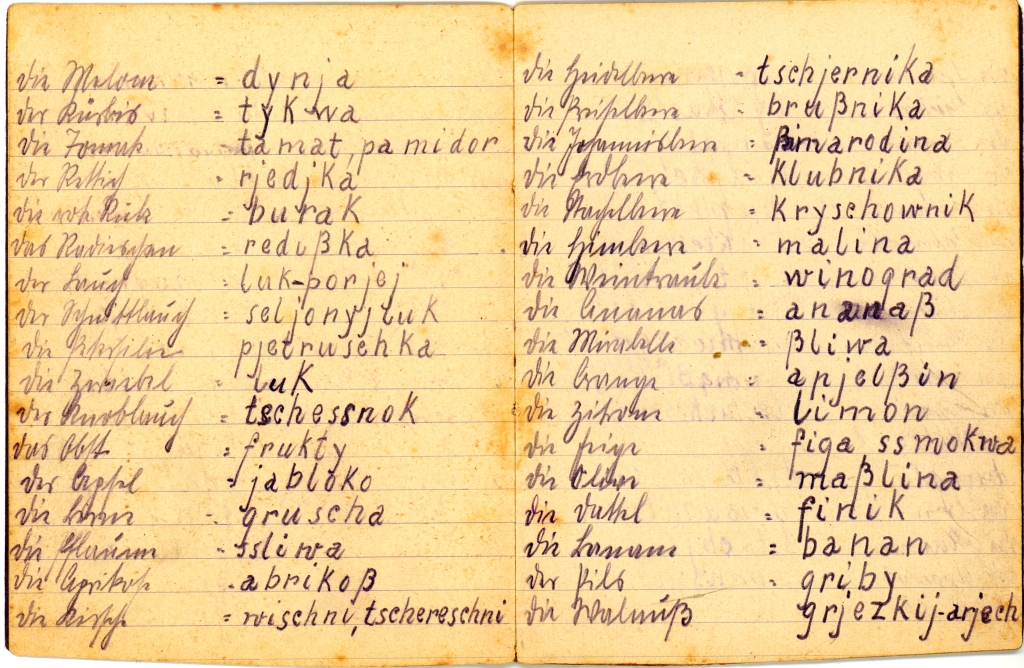 die Melone = dynja
der Kürbis = tykwa
die Tomate = tamat, pamidor
der Rettich = rjedjka
die rote Rübe = burak
das Radieschen = redißka
der Lauch = luk-porjej
der Schnittlauch = seljonyj luk
die Petersilie pjetruschka
die Zwiebel = luk
der Knoblauch = tschessnok
das Obst = frukty
der Apfel - jabloko
die Birne - gruscha
die Pflaume - ssliwa
die Aprikose - abrikoß
die Kirsche = wischni, tschereschni
die Heidelbeere = tschjernika
die Preiselbeere = brußnika
die Johannisbeere = ßmarodina
die Erdbeere = klubnika
die Stachelbeere = kryschownik
die Himbeere = malina
die Weintraube = winograd
die Ananas = ananaß
die Mirabelle = ßliwa
die Orange = apjelßin
die Zitrone = limon
die Feige = figa ssmokwa
die Olive = maßlina
die Dattel = finik
die Banane = banan
der Pilz = griby
die Walnuß grjezkij-arjech